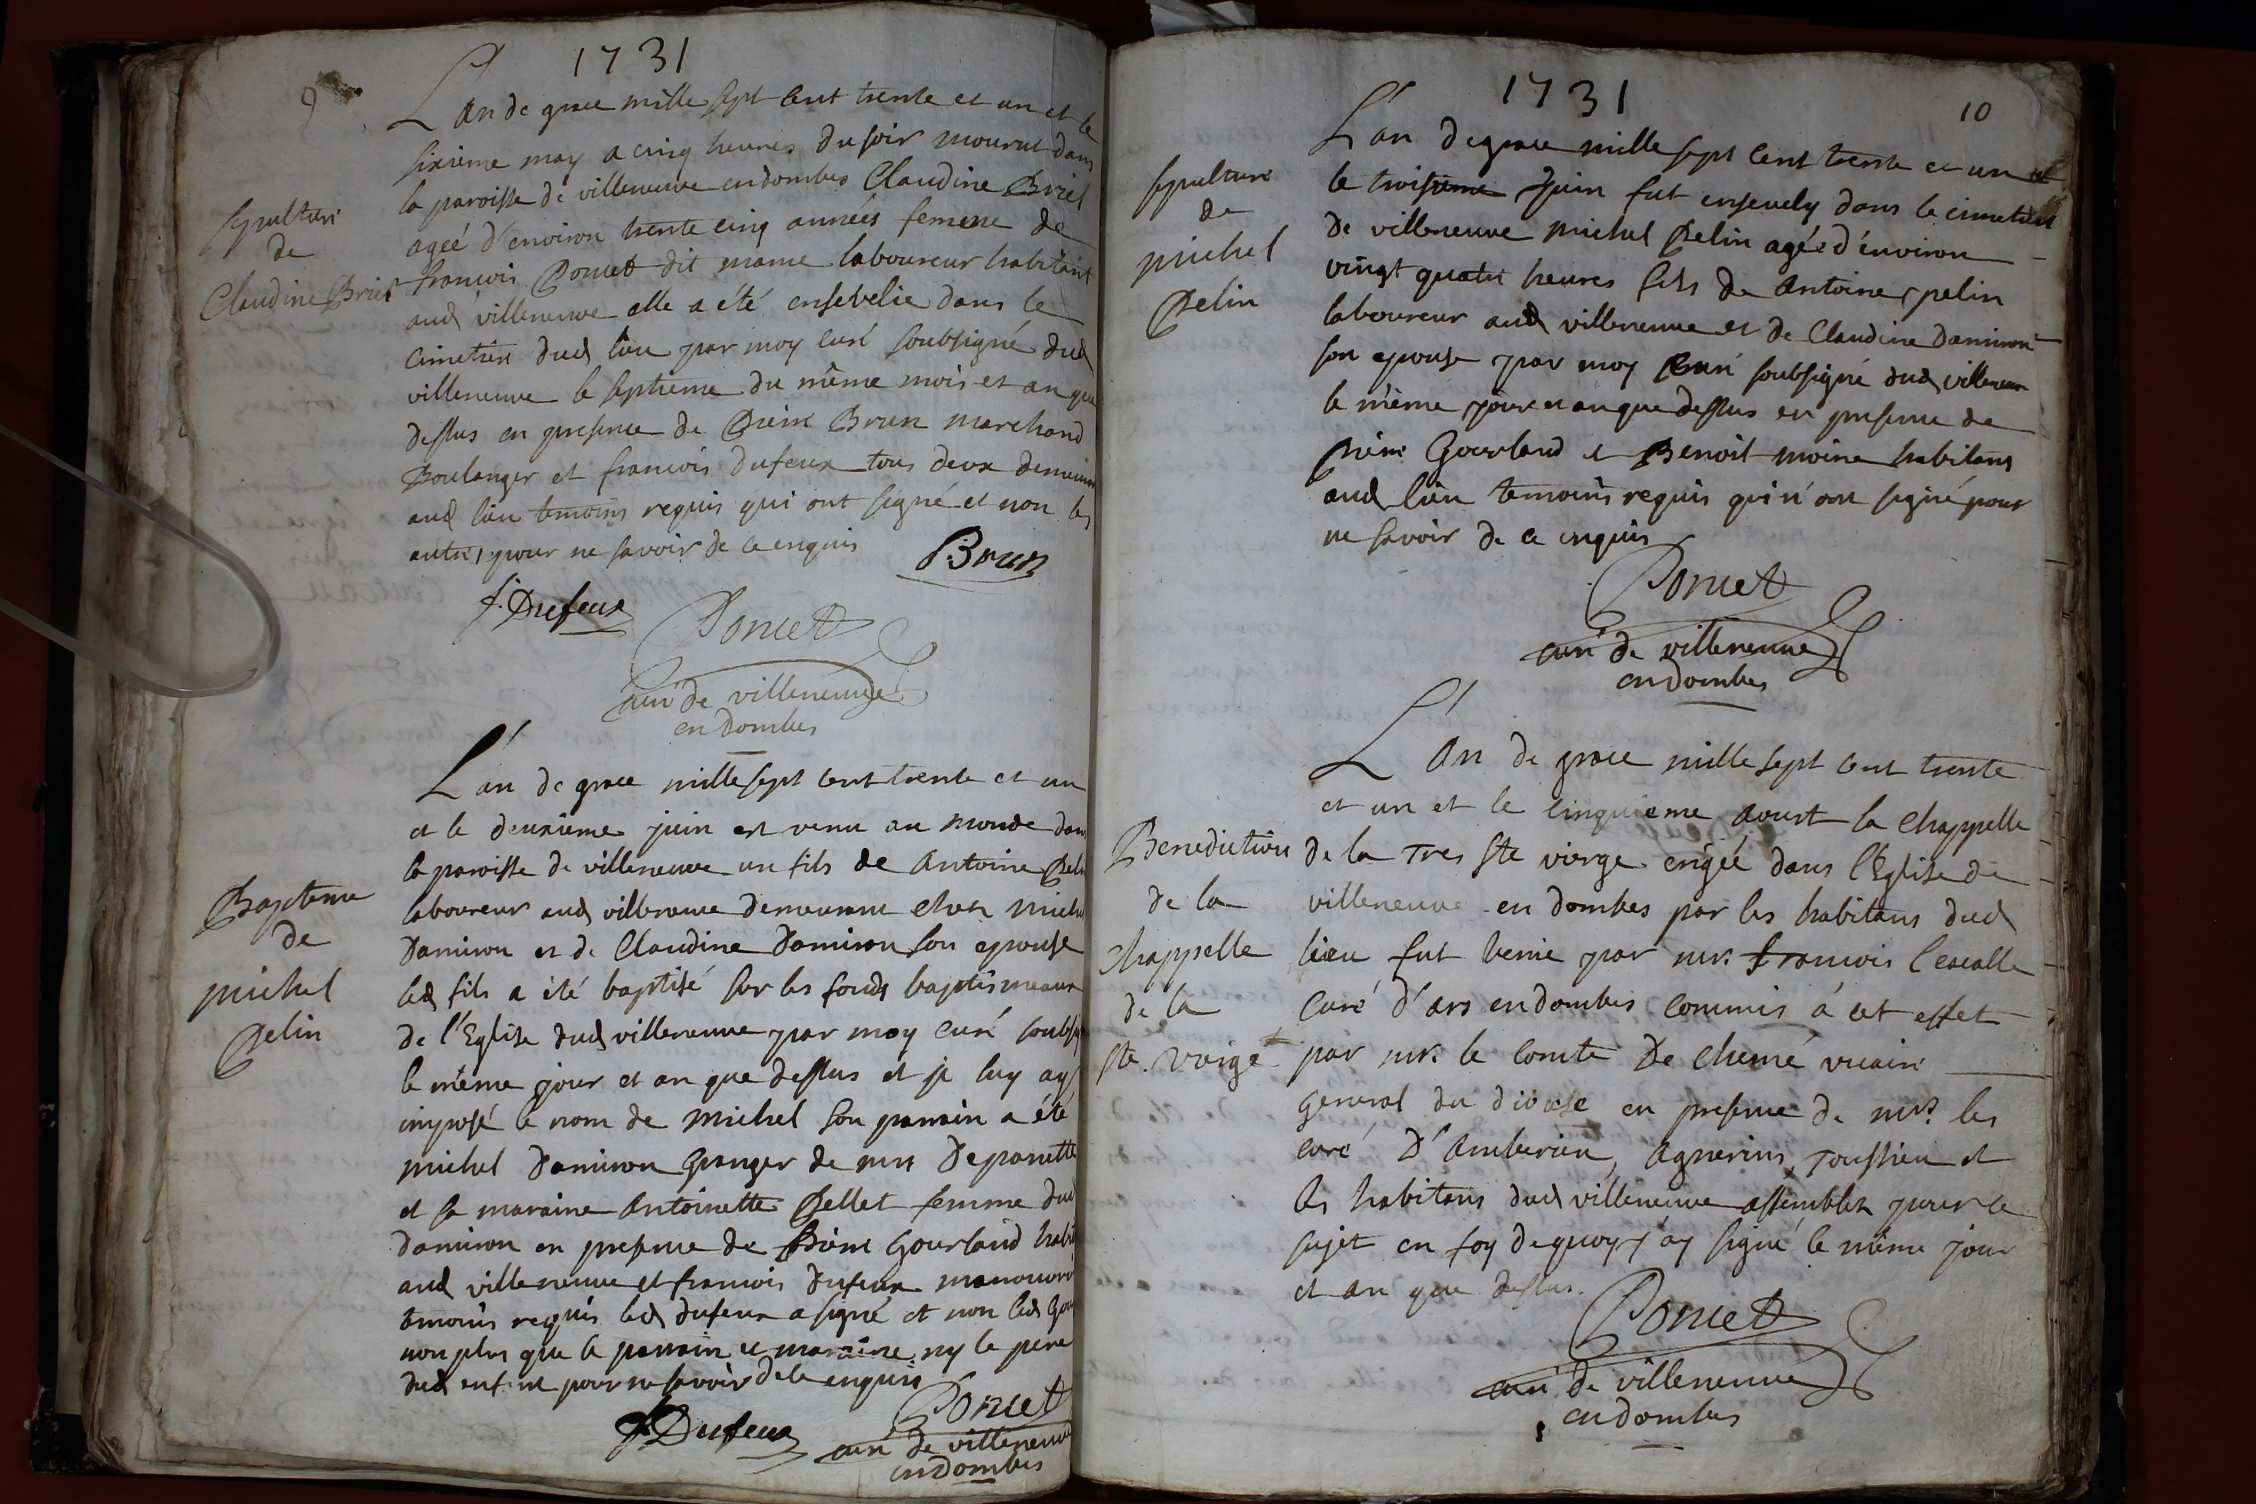 1731
9
L'an de grace mille sept cent trente et un et le
sixième may a cinq heures du soir mourut dans
la paroisse de villeneuve en dombes Claudine Briel
ageé d'environ trente cinq années femme de
francois Poncet dit mame laboureur habitant
aud villeneuve elle a été ensevelie dans le
cimetiere dud lieu par moy curé soubsigné dud
villeneuve le septieme du même mois et an que
dessus en presence de Pierre Brun marchand
Boulanger et francois dufeux tous deux
aud lieu temoins requis qui ont signé et non les
autres pour ne savoir de ce enquis
Sepulture
de
Claudine Briel
Brun
f. Dufeux
Poncet
curé de villeneuve
en dombes
L'an de grace mille sept cent trente et un
et le deuxieme juin est venu au monde dans
la paroisse de villeneuve un fils de Antoine Pelin
laboureur aud villeneuve demeurant chez michel
Damiron et de Claudine Damiron son epouse
led fils a été baptisé sur les fonds baptismeaux
de l'Eglise dud villeneuve par moy curé soubsig
le même jour et an que dessus et je luy ay
imposé le nom de michel son parrain a été
michel Damiron Granger de mrs Deponette
et sa maraine Antoinette Pellet femme dud
damiron en presence de Pierre Gourland habit
aud villeneuve et francois Dufeux manouvr
temoins requis led dufeux a signé et non led Gou
non plus que le parrain et maraine ny le pere
dud enfant pour ne savoir de ce enquis
Bapteme
de
michel
Pelin
f. Dufeux
Poncet
curé de villeneuve
en dombes
1731
10
L'an de grace mille sept cent trente et un et
le troisieme Juin fut ensevely dans le cimetiere
de villeneuve michel Pelin agée d'environ
vingt quatre heures fils de Antoine pelin
laboureur aud villeneuve et de Claudine damiron
son epouse par moy Curé soubsigné dud villeneuve
le même jour et an que dessus en presence de
Pierre Gourland et Benoit moine habitans
aud lieu temoins requis qui n'ont signé pour
ne savoir de ce enquis
Sepulture
de
michel
Pelin
Poncet
curé de villeneuve
en dombes
L'An de grace mille sept cent trente
et un et le cinquieme aoust la chappelle
de la Tres Ste vierge erigée dans l'Eglise de
villeneuve en dombes par les habitans dud
lieu fut benie par mr. francois l'escalle
curé d'ars en dombes commis á cet effet
par mr. le comte De chemé vicaire
general du diocese en presence de mrs. les
curé D'Amberieu, Agnerins, Toussieu et
les habitans dud villeneuve assemblez pour ce
sujet en foy dequoy j'ay signé le même jour
et an que dessus.
Benediction
de la
chappelle
de la
Ste. vierge
Poncet
curé de villeneuve
en dombes